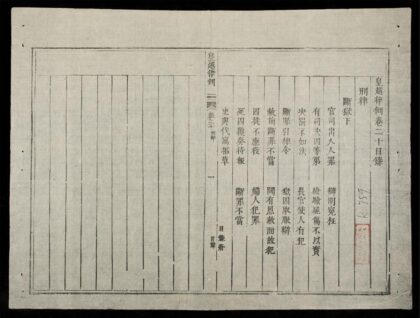 皇越律例卷二十目錄
刑律
斷獄下
官司出入人罪 辯明冤枉
有司決囚等第 檢驗屍傷不以實
決罰不如法 長官使人有犯
斷罪引律令 獄囚取服辯
赦前斷罪不當 聞有恩赦而故犯
囚徒不應役 婦人犯罪
死囚覆奏待報 斷罪不當
吏典代寫招草
皇越律例
一